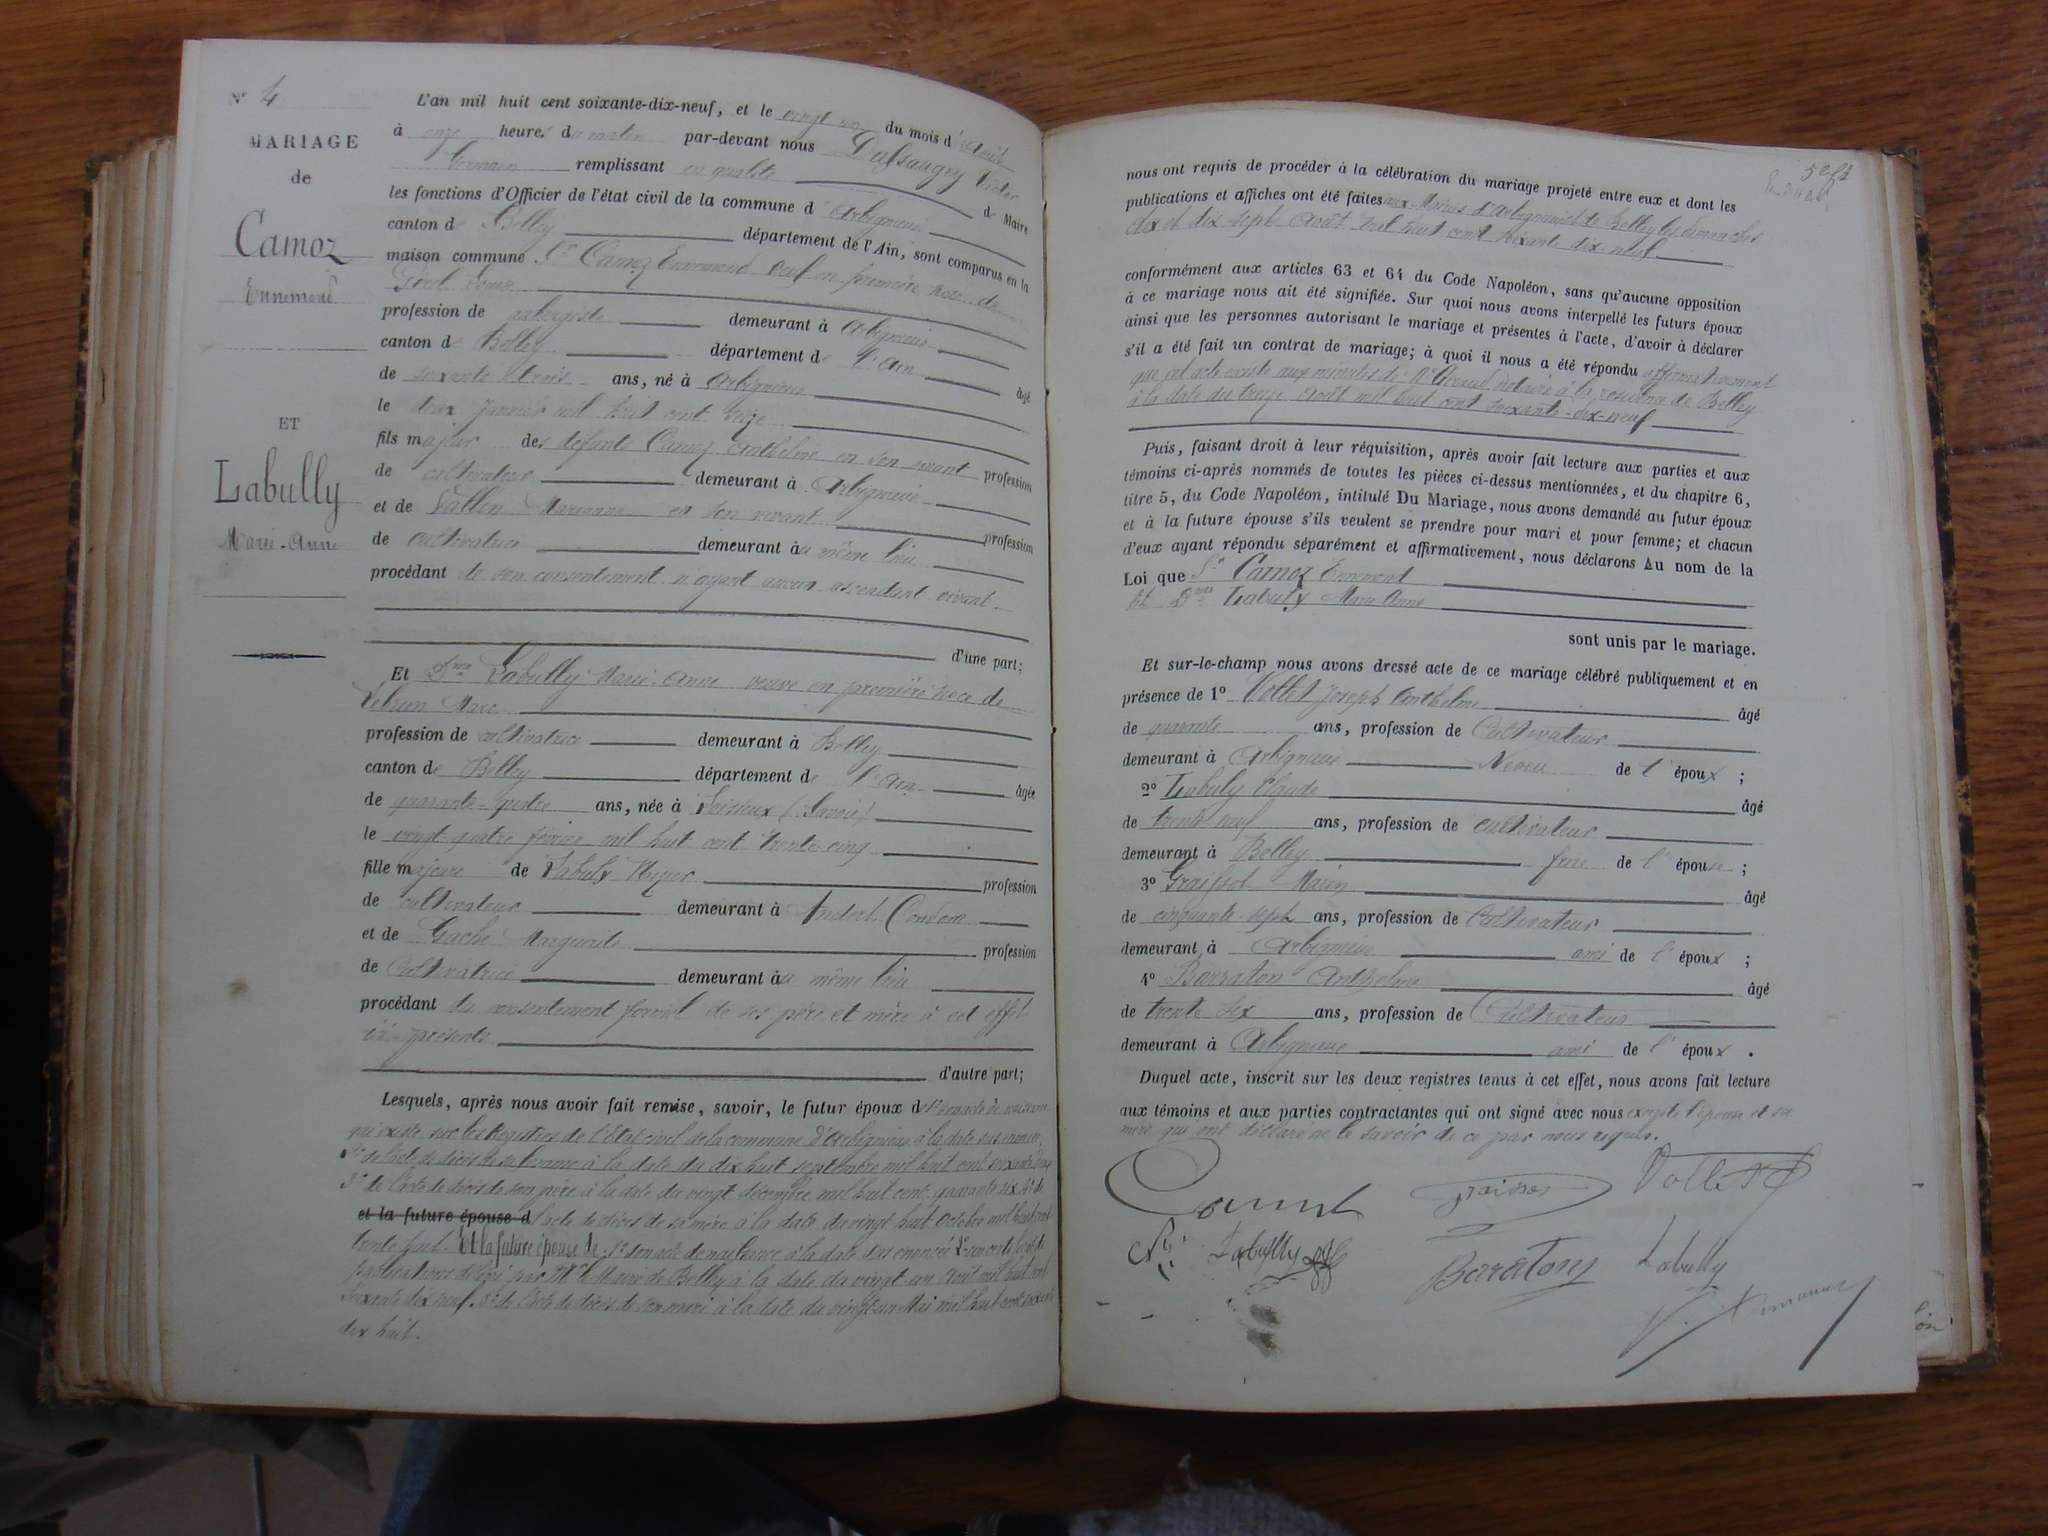 N° 4
MARIAGE
de
Camoz
Ennemond
ET
Labully
Marie-Anne
L'an mil huit cent soixante-dix-neuf, et le vingt un du mois d'Août
à onze heures du matin par-devant nous Dulsaugey Victor
Germain remplissant en qualité de Maire
les fonctions d'Officier de l'état civil de la commune d'Arbignieu
canton de Belley département de l'Ain, sont comparus en la
maison commune Sr Camoz Ennemond veuf en première noce de
Louise
profession de aubergiste demeurant à Arbignieu
canton de Belley département de l'Ain âgé
de soixante trois ans, né à Arbignieu
le deux Janvier mil huit cent seize
fils majeur des défunts Camoz Anthelme en son vivant profession
de cultivateur demeurant à Arbignieu
et de Vallin Marianne en son vivant profession
de cultivatrice demeurant au même lieu
procédant de son consentement n'ayant aucun ascendant vivant
d'une part;
Et Dme Labully Marie-Anne veuve en première noce de
Lebrun Marc
profession de cultivatrice demeurant à Belley
canton de Belley département de l'Ain âgée
de quarante-quatre ans, née à Loisieux (Savoie)
le vingt quatre février mil huit cent trente cinq
fille majeure de Labully profession
de cultivateur demeurant à Andert-Condon
et de Gache Marguerite profession
de Cultivatrice demeurant au même lieu
procédant du consentement formel de ses père et mère à cet effet
ici présents
d'autre part;
Lesquels, après nous avoir fait remise, savoir, le futur époux de 1° son acte de naissance
qui existe sur les Registres de l'Etat civil de la commune d'Arbignieu à la date sus énoncée,
2° de l'acte de décès de sa femme à la date du dix huit septembre mil huit cent soixante
3° de l'acte de décès de son père à la date du vingt décembre mil huit cent quarante six 4° de
et la future épouse d l'acte de décès de sa mère à la date du vingt huit octobre mil huit cent
trente huit. Et la future épouse de 1° son acte de naissance à la date sus énoncée 2° son certificat de
publications délivré par Mr le Maire de Belley à la date du vingt un août mil huit cent
soixante dix neuf. 3° de l'acte de décès de son mari à la date du vingt un Mai mil huit cent soixante
dix huit.
nous ont requis de procéder à la célébration du mariage projeté entre eux et dont les
publications et affiches ont été faites aux Mairies d'Arbignieu et de Belley les dimanches
dix et dix sept Août mil huit cent soixante dix-neuf
conformément aux articles 63 et 64 du Code Napoléon, sans qu'aucune opposition
à ce mariage nous ait été signifiée. Sur quoi nous avons interpellé les futurs époux
ainsi que les personnes autorisant le mariage et présentes à l'acte, d'avoir à déclarer
s'il a été fait un contrat de mariage; à quoi il nous a été répondu affirmativement
que cet acte existe aux minutes de Me notaire à la résidence de Belley
à la date du treize Août mil huit cent soixante-dix-neuf
Puis, faisant droit à leur réquisition, après avoir fait lecture aux parties et aux
témoins ci-après nommés de toutes les pièces ci-dessus mentionnées, et du chapitre 6,
titre 5, du Code Napoléon, intitulé Du Mariage, nous avons demandé au futur époux
et à la future épouse s'ils veulent se prendre pour mari et pour femme; et chacun
d'eux ayant répondu séparément et affirmativement, nous déclarons Au nom de la
Loi que Sr Camoz Ennemont
et Dme Labully Marie Anne
sont unis par le mariage.
Et sur-le-champ nous avons dressé acte de ce mariage célébré publiquement et en
présence de 1° Vollet Joseph Anthelme âgé
de quarante ans, profession de Cultivateur
demeurant à Arbignieu Neveu de l'époux ;
2° Labully Claude âgé
de trente neuf ans, profession de cultivateur
demeurant à Belley frère de l'épouse ;
3° Graissot Marin âgé
de cinquante-sept ans, profession de Cultivateur
demeurant à Arbignieu ami de l'époux ;
4° Barraton Anthelme âgé
de trente six ans, profession de Cultivateur
demeurant à Arbignieu ami de l'époux .
Duquel acte, inscrit sur les deux registres tenus à cet effet, nous avons fait lecture
aux témoins et aux parties contractantes qui ont signé avec nous excepté l'épouse et sa
mère qui ont déclaré ne le savoir de ce par nous requis.
Vollet
Labully
Barraton
Labully